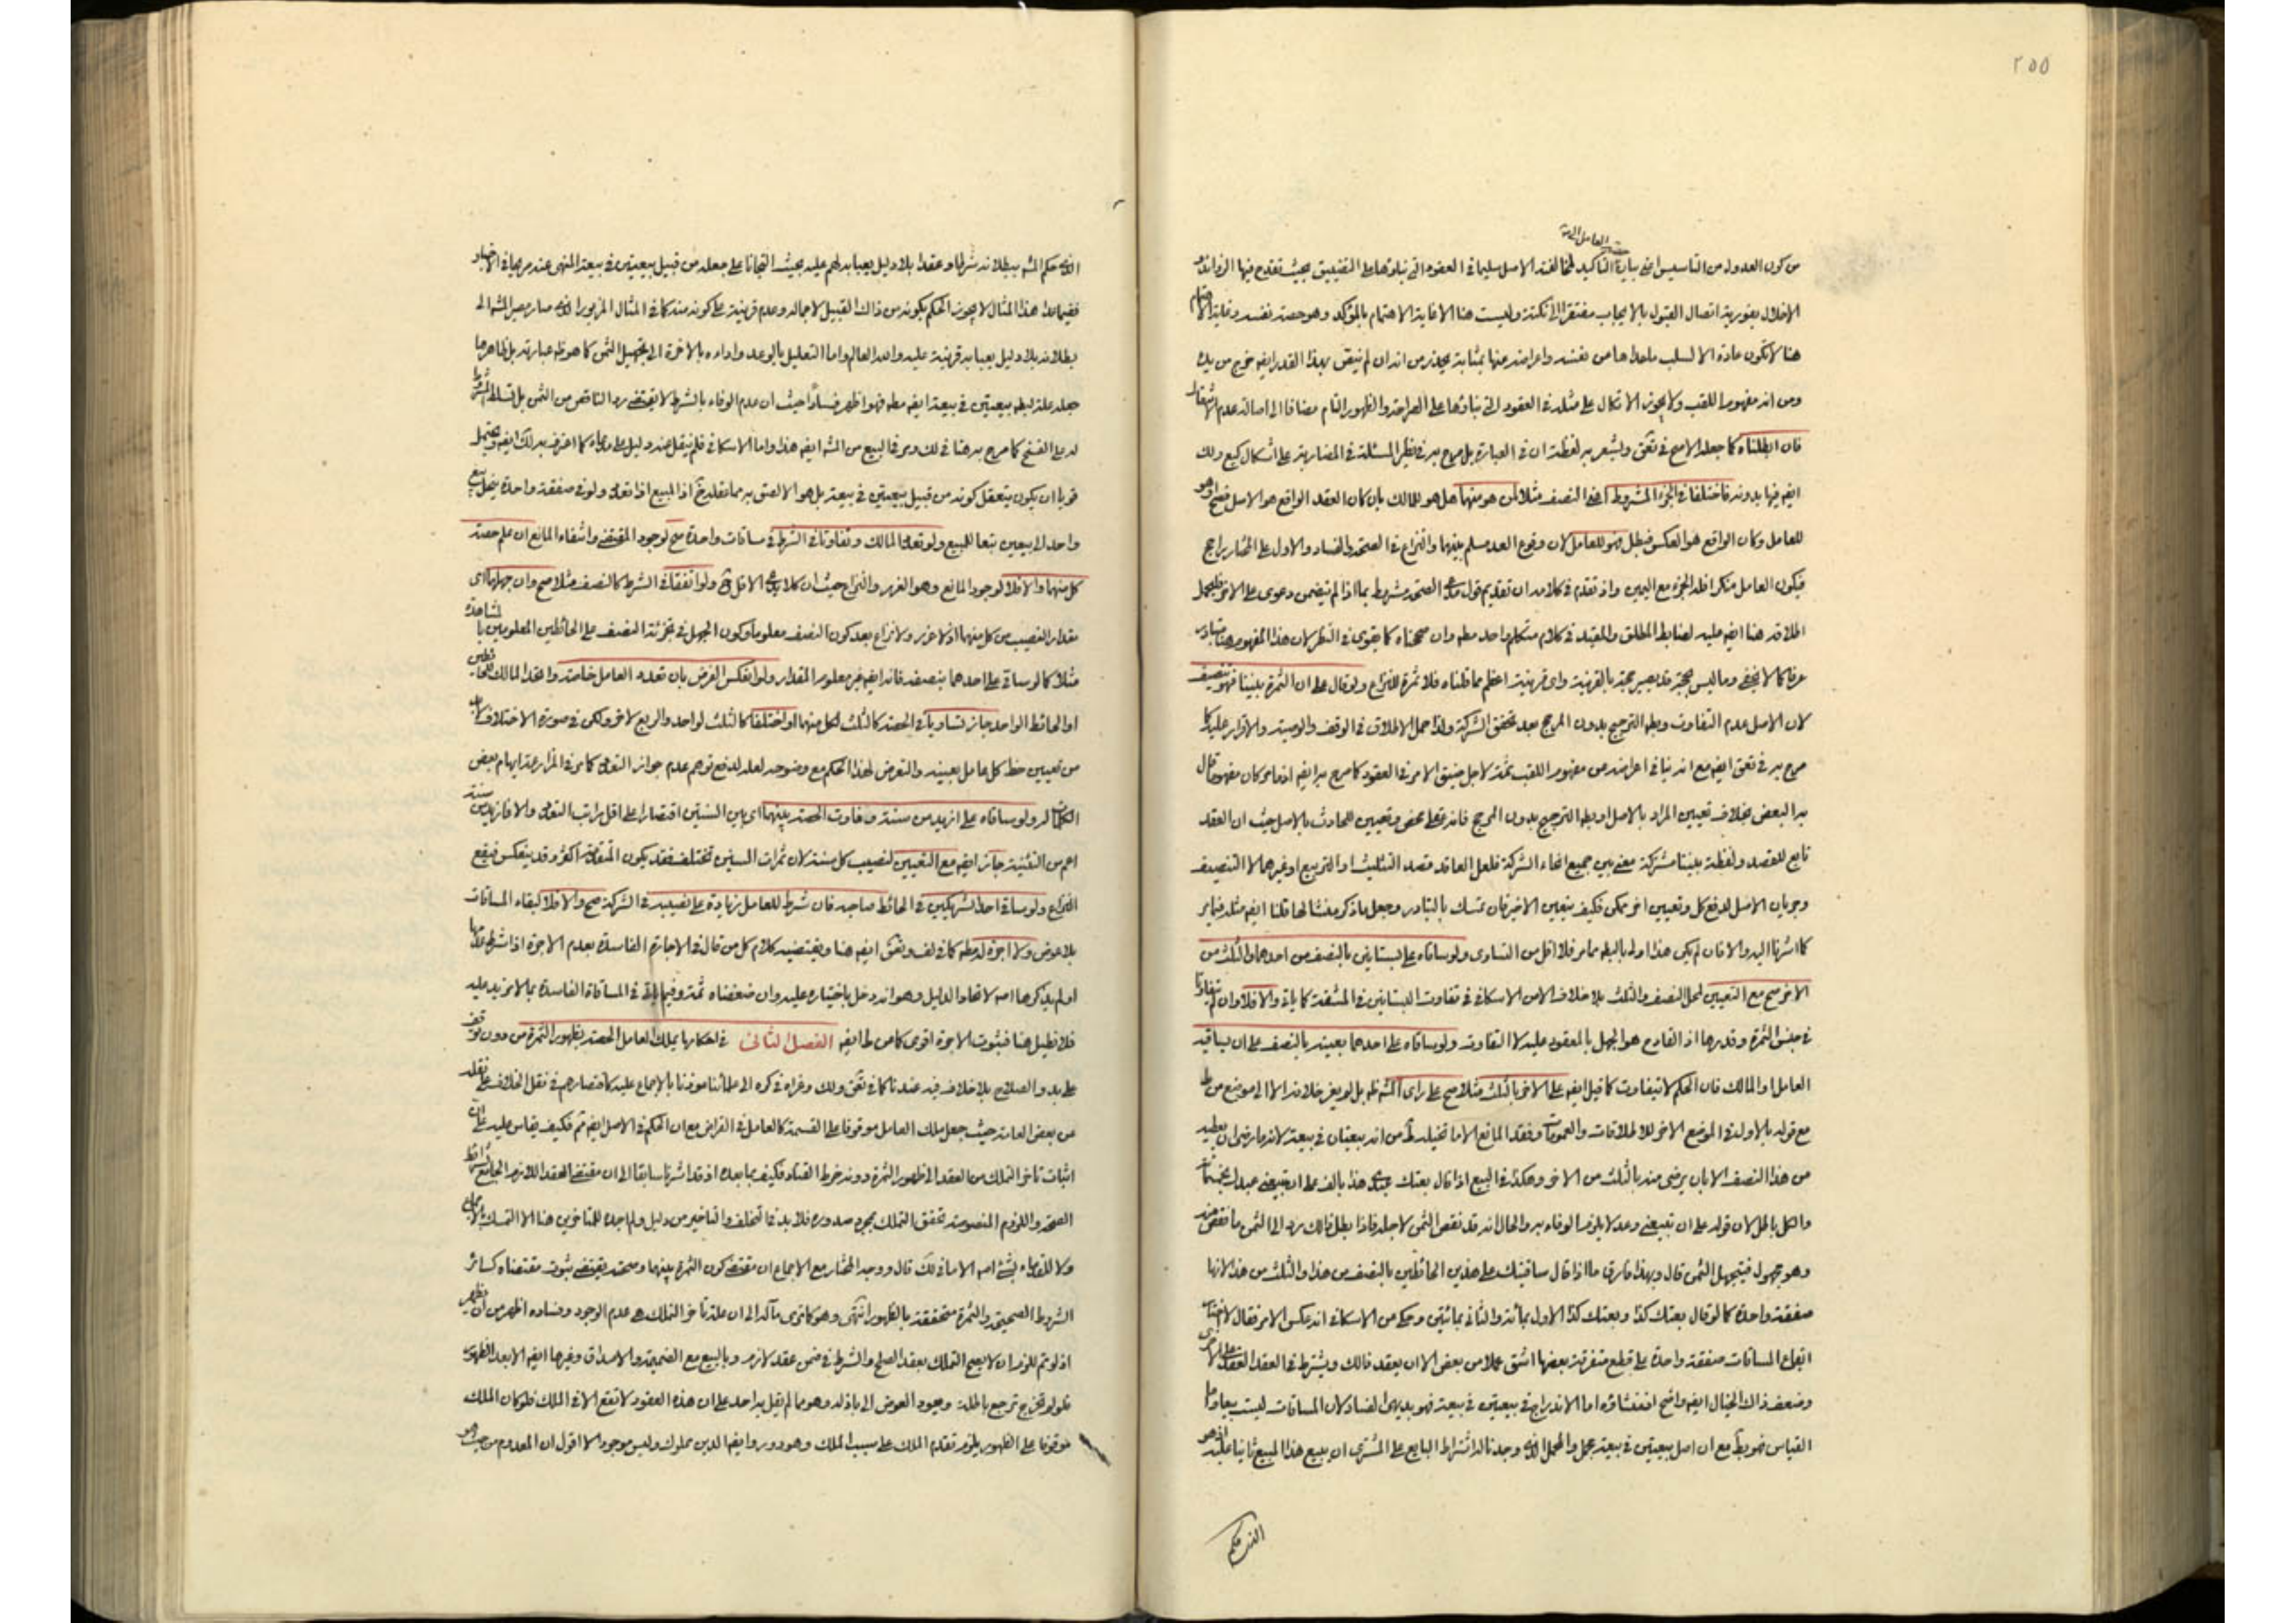 ٢٥٥
العامل الا انه
من كون العدول من التاسيس الى التاكيد مخالفة الاصل سليما في العقود التي بناؤها على التضييق بحيث تقدح فيها
الاخلال بفورية اتصال القبول بالايجاب مفتقر الى نكتة وليست هنا الا غاية الاهتمام بالمؤكد وهو حصة نفسه وغاية
هنا لا تكون عادة الا لسلب ما عداها من نفسه واعراضه عنها بمثابة يحذر من انه ان لم يتيقن بهذا القدر ايضه خرج من يده
ومن انه مفهوم اللقب ولا يجوز الاتكال على مثله في العقود التي بناؤها على الصراحة والظهور التام مضافا الى اصالة عدم
فان ابطلناه كما جعله الاصح في ويشعر به لفظة ان في العبارة بل صرح به في نظير المسئلة في المضاربة على اشكال
ايضه فيها بدونه فاختلفا في الجزء المشروط اعني النصف مثلا لمن هو منهما هل هو للمالك بان كان العقد الواقع هو الاصل فصح او هو
للعامل وكان الواقع هو العكس فبطل فهو للعامل لان وقوع العقد مسلم بينهما والنزاع في الصحة والفساد والاول على المختار راجح
فيكون العامل منكرا فله الجزء مع اليمين واذ تقدم في كلامه ان تقديم قول مدعي الصحة مشروط بما اذا لم يتضمن دعوى على الاخر
اطلاقه هنا ايضه عليه لضابط المطلق والمقيد في كلام متكلم واحد مطه وان صححناه كما يقوى في النظر لان هذا المفهوم هنا
عرفا كما لا يخفى وما ليس بحجة قد يصير حجة بالقرينة واي قرينة اعظم مما قلناه فلا ثمرة للنزاع ولو قال على ان الثمرة بيننا فهو تنصيف
لان الاصل عدم التفاوت وبطه الترجيح بدون المرجح بعد تحقق الشركة ولذا حمل الاطلاق في الوقف والوصية والاقرار عليه كما
صرح به في ايضه مع انه ينافي اعراضه من مفهوم اللقب ثمة لاجل ضيق الامر في العقود كما صرح به ايضه
به البعض بخلاف تعيين المراد بالاصل او بطه الترجيح بدون المرجح فانه غلط محض وتعيين للحادث بالاصل حيث ان العقد
تابع للقصد ولفظة بيننا مشتركة معنى بين جميع انحاء الشركة فلعل العاقد قصد التثليث او التربيع او غيرهما لا التنصيف
وجريان الاصل لدفع كل وتعيين اخر ممكن فكيف يتعين الاخير فان تمسك بالتبادر وجعل ما ذكر منشئا لها قلنا ايضه مثله فيما مر
كما اشرنا اليه والا فان لم يكن هذا اولى بالبطه مما مر فلا اقل من التساوى ولو ساقاه على بستانين بالنصف من احدهما والثلث من
الاخر صح مع التعيين لمحل النصف والثلث بلا خلاف الا من الاسكافي في تفاوت البستانين في المشقة كما ياتي والا فلا وان لم
في جنس الثمرة وقدرها اذ القادح هو الجهل بالمعقود عليه لا التفاوت ولو ساقاه على احدهما بعينه بالنصف على ان يساقيه
العامل او المالك فان الحكم لا يتفاوت كما قيل ايضه على الاخر بالثلث مثلا صح على راى الشه طه بل لم يعز خلافه الا الى موضع من ط
مع قوله بالاول في الموضع الاخر للاطلاقات والعمومات وفقد المانع الا ما تخيله ط من انه بيعتان في بيعة لانه ما رضى ان يعطيه
من هذا النصف الا بان يرضى منه بالثلث من الاخر وهكذا في البيع اذا قال بعتك عبدي هذا بالف على ان تبيعني عبدك بخمسمائة
والكل باطل لان قوله على ان تبيعني وعد لا يلزم الوفاء به والحال انه قد نقص الثمن لاجله فاذا بطل ذلك رد الى الثمن ما نقص منه
وهو مجهول فيتجهل الثمن قال وبهذا فارق ما اذا قال ساقيتك على هذين الحائطين بالنصف من هذا والثلث من هذا لانها
صفقة واحدة كما لو قال بعتك كذا وبعتك كذا الاول بمائة والثاني بمائتين وحكى من الاسكافي انه عكس الامر فقال لا
ايقاع المساقات صفقة واحدة على قطع متفرقة بعضها اشق عملا من بعض الا ان يعقد ذلك ويشترط في العقد العقد على الاخرى
وضعف ذاك الخيال ايضه واضح اما الاندراج في بيعتين في بيعة فهو بديهي الفساد لان المساقات ليست بيعا واما
القياس فهو بط مع ان اصل بيعتين في بيعة مجمل والمحمل الذى وجدنا له اشتراط البايع على المشترى ان يبيع هذا المبيع ثانيا عليه
الذى حكم
الذى حكم الشه ببطلانه شرطا وعقدا بلا دليل يعبا به لهم عليه بحيث التجانا على جعله من قبيل بيعتين في بيعة المنهى عنه صريحا في الاخبار
ففيما عدا هذا المثال لا يجوز الحكم بكونه من ذاك القبيل لاجماله وعدم قرينة على كونه منه كما في المثال المزبور الذى صار مصير الشه الى
بطلانه بلا دليل يعبا به قرينة عليه والله العالم واما التعليل بالوعد واداءه بالاخرة الى تجهيل الثمن كما هو ظه عبارته بل ظاهر ما
جعله علة لبطه بيعتين في بيعة ايضه مطه فهو اظهر فسادا حيث ان عدم الوفاء بالشرط لا يقتضي رد الناقص من الثمن بل تسلط المشروط
له على الفسخ كما صرح به هنا في لك وفي البيع من الشه ايضه هذا واما الاسكافي فلم ينقل عنه دليل على مدعاه كما اعترف به لك ايضه ويحتمل
قويا ان يكون يتعقل كونه من قبيل بيعتين في بيعة بل هو الالصق به مما تقلدخ اذ المبيع اذا تعدد ولو في صفقة واحدة ينحل بيع
واحد الى بيعين تبعا للبيع ولو تعدد المالك وتفاوتا في الشرط في مساقات واحدة صح لوجود المقتضي وانتفاء المانع ان علم حصة
كل منهما والا فلا لوجود المانع وهو الغرر والنزاع حيث ان كلا يدعى الاقل ولو اتفقا في الشرط كالنصف مثلا صح وان جهلهما اى
مقدار النصيب من كل منهما اذ لا غرر ولا نزاع بعد كون النصف معلوما وكون الجهل في تجزئة النصف على الحائطين المعلومين بالمشاهدة
مثلا كما لو ساقى على احدهما بنصفه فانه ايضه غير معلوم المقدار ولو انعكس الفرض بان تعدد العامل خاصة واتحد المالك
او الحائط الواحد جاز تساويا في الحصة كالثلث لكل منهما او اختلفا كالثلث لواحد والربع لاخر ولكن في صورة الاختلاف لابد
من تعيين حظ كل عامل بعينه والتعرض لهذا الحكم مع وضوحه لعله لدفع توهم عدم جواز التعدد كما مر في المزارعة ايهام بعض
الكلمات له ولو ساقاه على ازيد من سنة وفاوت الحصة بينهما اى بين السنتين اقتصارا على اقل مراتب التعدد والا فازيد من سنة
اعم من التثنية جاز ايضه مع التعيين لنصيب كل سنة لان ثمرات السنين تختلف فقد يكون المتقدمة اكثر وقد ينعكس فيقع
النزاع ولو ساقى احد الشريكين في الحائط صاحبه فان شرط للعامل زيادة على نصيبه في الشركة صح والا فلا لبقاء المساقات
بلا عوض ولا اجرة له مطه كما في لف ايضه هنا ويقتضيه كلام كل من قال في الاجارة الفاسدة بعدم الاجرة اذا شرط عدمها
او لم يذكرها امه لاتحاد الدليل وهو انه دخل باختياره عليه وان ضعفناه ثمة وفيما ياتى في المساقاة الفاسدة بما لا مزيد عليه
فلا نطيل هنا فثبوت الاجرة اقوى كما من ط ايضه الفصل الثانى في احكامها يملك العامل الحصة بظهور الثمرة من دون توقف
على بدو الصلاح بلا خلاف فيه عندنا كما في ولك وعزاه في كره الى علمائنا موذنا بالاجماع عليه كاقتصارهم في نقل الخلاف على نقله
من بعض العامة حيث جعل ملك العامل موقوفا على القسمة كالعامل في القراض مع ان الحكم في الاصل ايضه ثم فكيف يقاس عليه
اثبات تاخر التملك من العقد الى ظهور الثمرة دونه خرط القتاد فكيف بما بعده اذ قد اشرنا سابقا الى ان مقتضى العقد اللازم الجامع
الصحة واللزوم المنصوصة تحقق التملك بمجرد صدوره فلا بد في التخلف والتاخير من دليل ولم اجده للتاخير هنا الا التمسك بالاجماع
ولا للقدماء بشيء امه الا ما في لك قال ووجه المختار مع الاجماع ان مقتضى كون الثمرة بينهما وصحته يقتضى ثبوت مقتضاه كسائر
الشروط الصحيحة والثمرة متحققة بالظهور انتهى وهو كما ترى مآله الى ان علة تاخر التملك هو عدم الوجود وفساده اظهر من ان يظهر
اذ لو تم للزم ان لا يصح التملك بعقد الصلح والشرط في ضمن عقد لازم وبالبيع مع الضميمة والاصداق وغيرها ايضه الا بعد الظهور
فلو لم تخرج ترجع باطلة ويعود العوض الى باذله وهو مما لم يقل به احد على ان هذه العقود لا تقع الا في الملك فلو كان الملك
موقوفا على الظهور يلزم تقدم الملك على سبب الملك وهو دور وايضه الدين مملوك وليس موجودا لا اقول ان المعدوم من حيث هو